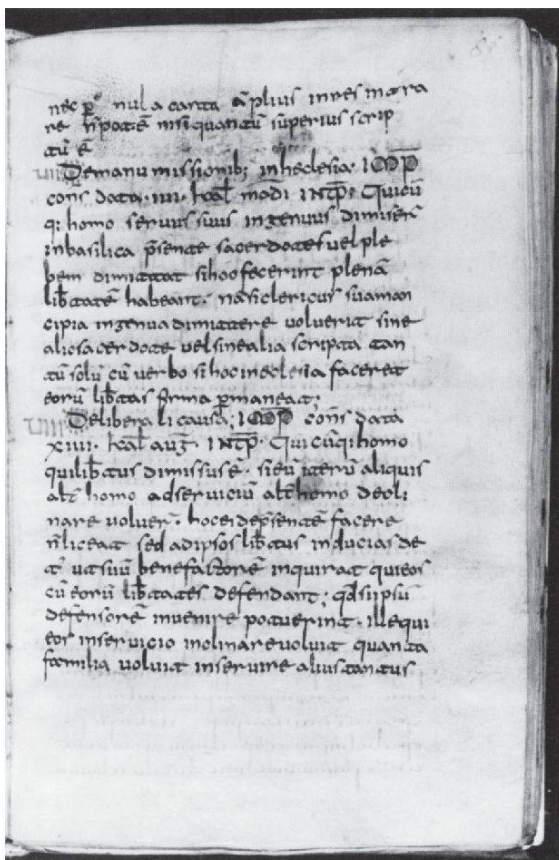 nec ꝑ nula carta āplius inres intra
re n̄potē nisi quantū superius scrip
tū ē
VIII Demanu missionibꝫ inheclesia; IMP̄
cons̄ data· IIII· kal̄ madi· INTP̄· Quicū
qꝫ homo seruus suus ingenuus dimiser̄
inbasilica p̄sente sacerdotes uel ple
bem dimittat sihoc fecerint plenā
lib̄tatē habeant· nāsiclericus suaman
cipia ingenua dimittere uoluerit sine
alio sacerdote uel sinealia scripta tan
tū solū cū uerbo sihoc ineclesia faceret
eorū lib̄tas firma ꝑmaneat·
VIIII Deliberali causa; IMP̄ cons̄ data
XIIII· kal̄ aug̅· INTP̄· Qui cūqꝫ homo
quilib̄tus dimissus ē· si eū iterū aliquis
alt̄ homo adseruiciū alt̄ homo decli
nare uoluer̄· hoc ei dep̄sentē facere
n̄liceat sed adipsos lib̄tus inducias de
t̄ ut suū benefactorē inquirat qui eos
cū eorū lib̄tates defendant; qd̄ si ipsū
defensorē inuenire potuerint· ille qui
eos inseruicio inclinare uoluit quanta
familia uoluit inseruire alius tantus